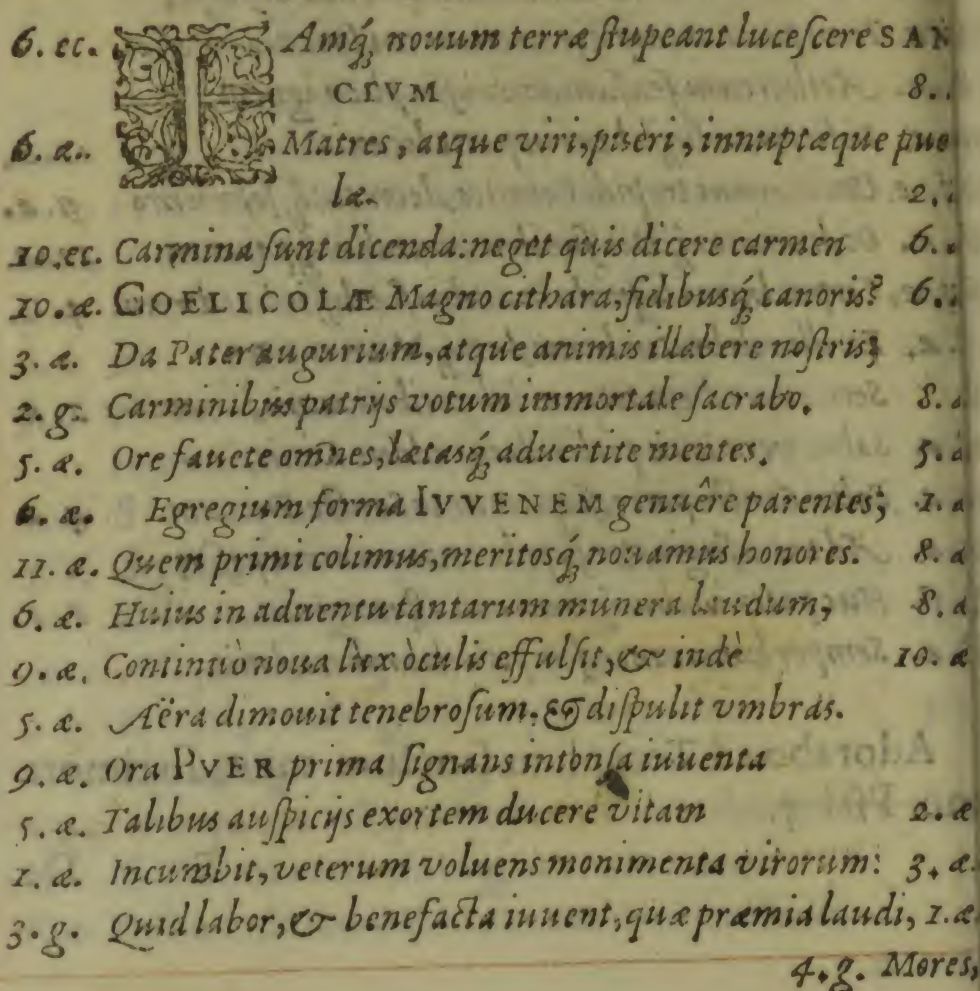 6. ec. IAmq́, nouum terræ stupeant lucescere SAN
CTVM 8.
6. æ. Matres, atque viri, pueri, innuptæque pue
læ. 2.
10. ec. Carmina sunt dicenda: neget quis dicere carmèn 6.
10. æ. COELICOLÆ Magno cithara, fidibusq́, canoris? 6.
3. æ. Da Pater augurium, atque animis illabere nostris;
2. g. Carminibus patrijs votum immortale sacrabo. 8.
5. æ. Ore fauete omnes, lætasq́, aduertite mentes. 5. a
6. æ. Egregium forma IVVENEM genuêre parentes; 1. a
11. æ. Quem primi colimus, meritosq́, nouamus honores. 8. a
6. æ. Huius in aduentu tantarum munera laudum, 8. a
9. æ. Continuò noua lux òculis effulsit, & indè 10. æ
5. æ. Aëra dimouit tenebrosum, & dispulit vmbras.
9. æ. Ora PVER prima signans intonsa iuuenta
5. æ. Talibus auspicijs exortem ducere vitam 2. æ
1. æ. Incumbit, veterum voluens monimenta virorum: 3. æ.
3. g. Quid labor, & benefacta iuuent, quæ præmia laudi, 1. æ
4. g. Mores,